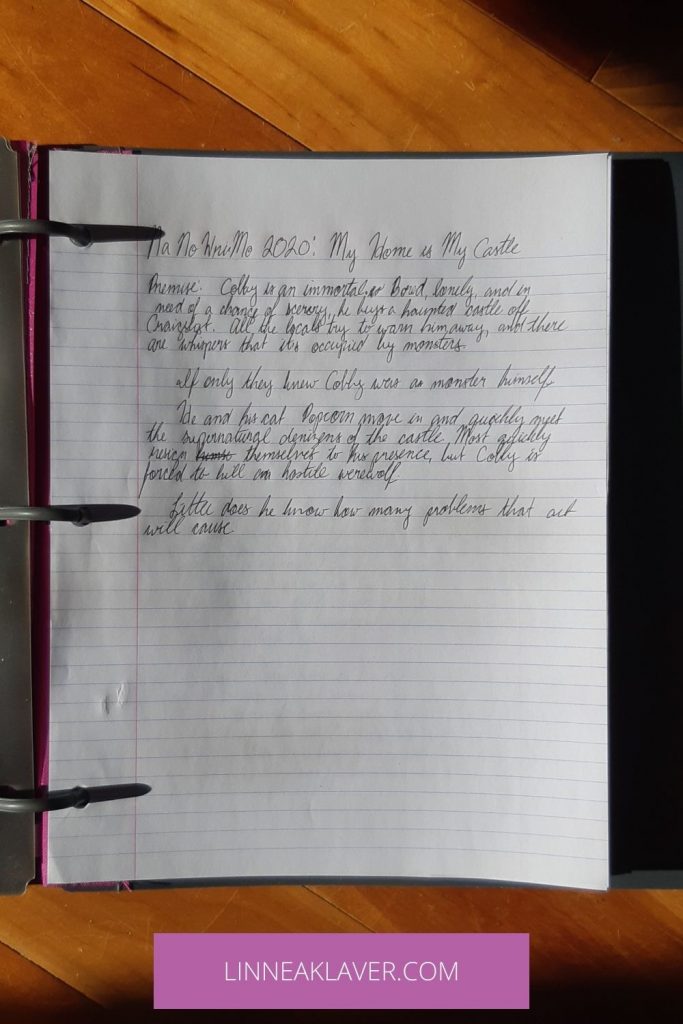 NaNoWriMo 2020: My Home is My Castle
Premise: Colby is an immortal. Bored, lonely, and in
need of a change of scenery, he buys a haunted castle off
Craigslist. All the locals try to warn him away, and there
are whispers that it's occupied by monsters.
If only they knew Colby was a monster himself.
He and his cat Popcorn move in and quickly meet
the supernatural denizens of the castle. Most quickly
resign themselves to his presence, but Colby is
forced to kill a hostile werewolf.
Little does he know how many problems that act
will cause
LINNEAKLAVER.COM